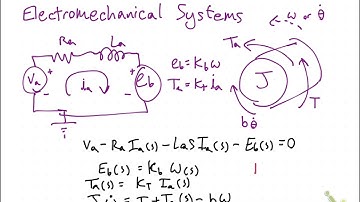 Electromechanical Systems
Ra La
ω or θ̇
Va + ia + eb
eb = Kb ω
Ta = KT ia
Ta J T
bθ̇
Va - Ra Ia(s) - LaS Ia(s) - Eb(s) = 0
Eb(s) = Kb ω(s)
Ta(s) = KT Ia(s)